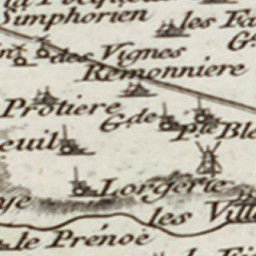 Simphorien
les Fa
des Vignes
Remonniere
Protiere
G. de
P.te Ble
euil
Lorgerie
les Ville
le Prénoë